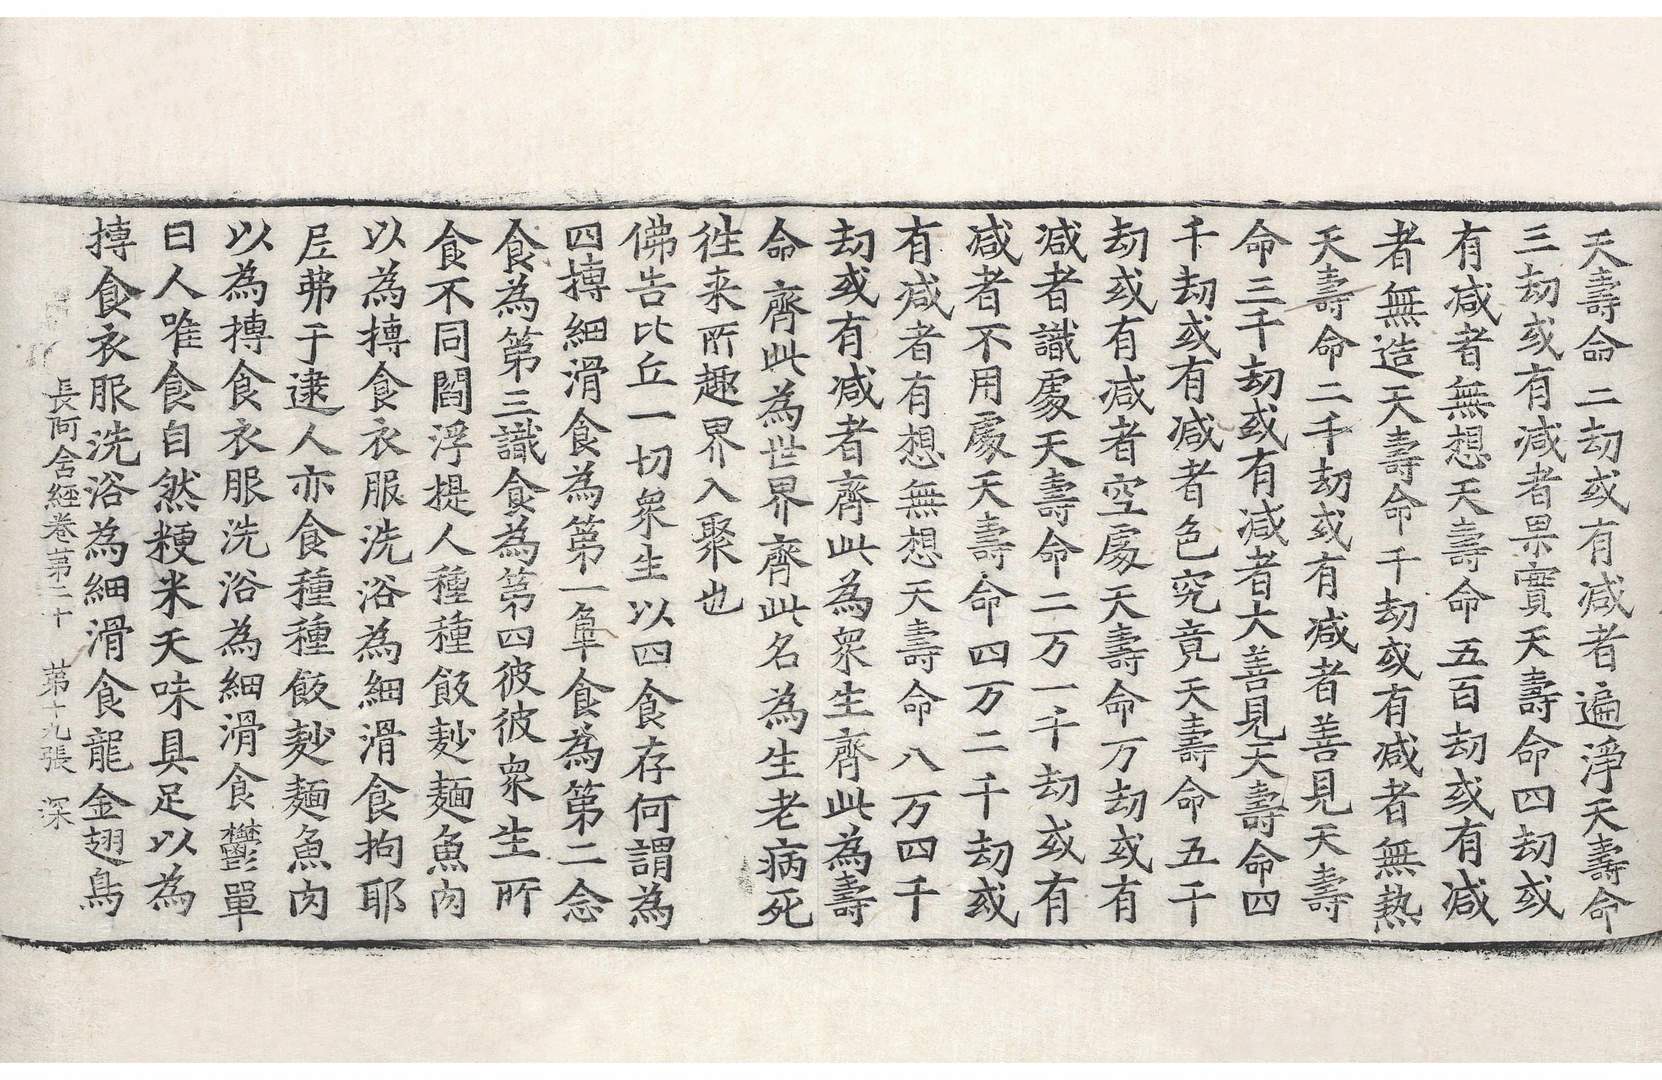 天壽命二劫或有减者遍淨天壽命
三劫或有减者果實天壽命四劫或
有减者無想天壽命五百劫或有减
者無造天壽命千劫或有减者無熱
天壽命二千劫或有减者善見天壽
命三千劫或有减者大善見天壽命四
千劫或有减者色究竟天壽命五千
劫或有减者空處天壽命万劫或有
减者識處天壽命二万一千劫或有
减者不用處天壽命四万二千劫或
有减者有想無想天壽命八万四千
劫或有减者齊此為衆生齊此為壽
命齊此為世界齊此名為生老病死
往来所趣界入聚也
佛告比丘一切衆生以四食存何謂為
四摶細滑食為第一觸食為第二念
食為第三識食為第四彼彼衆生所
食不同閻浮提人種種飯麨麵魚肉
以為摶食衣服洗浴為細滑食拘耶
尼弗于逮人亦食種種飯麨麵魚肉
以為摶食衣服洗浴為細滑食欝單
曰人唯食自然粳米天味具足以為
摶食衣服洗浴為細滑食龍金翅鳥
長阿含經卷第二十 第十九張 深